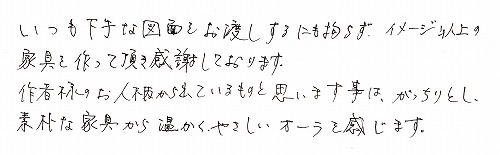 いつも下手な図面をお渡しするにも拘らず、イメージ以上の
家具を作って頂き感謝しております。
作者様のお人柄から出ているものと思います事は、がっちりとし、
素朴な家具から温かく、やさしいオーラを感じます。